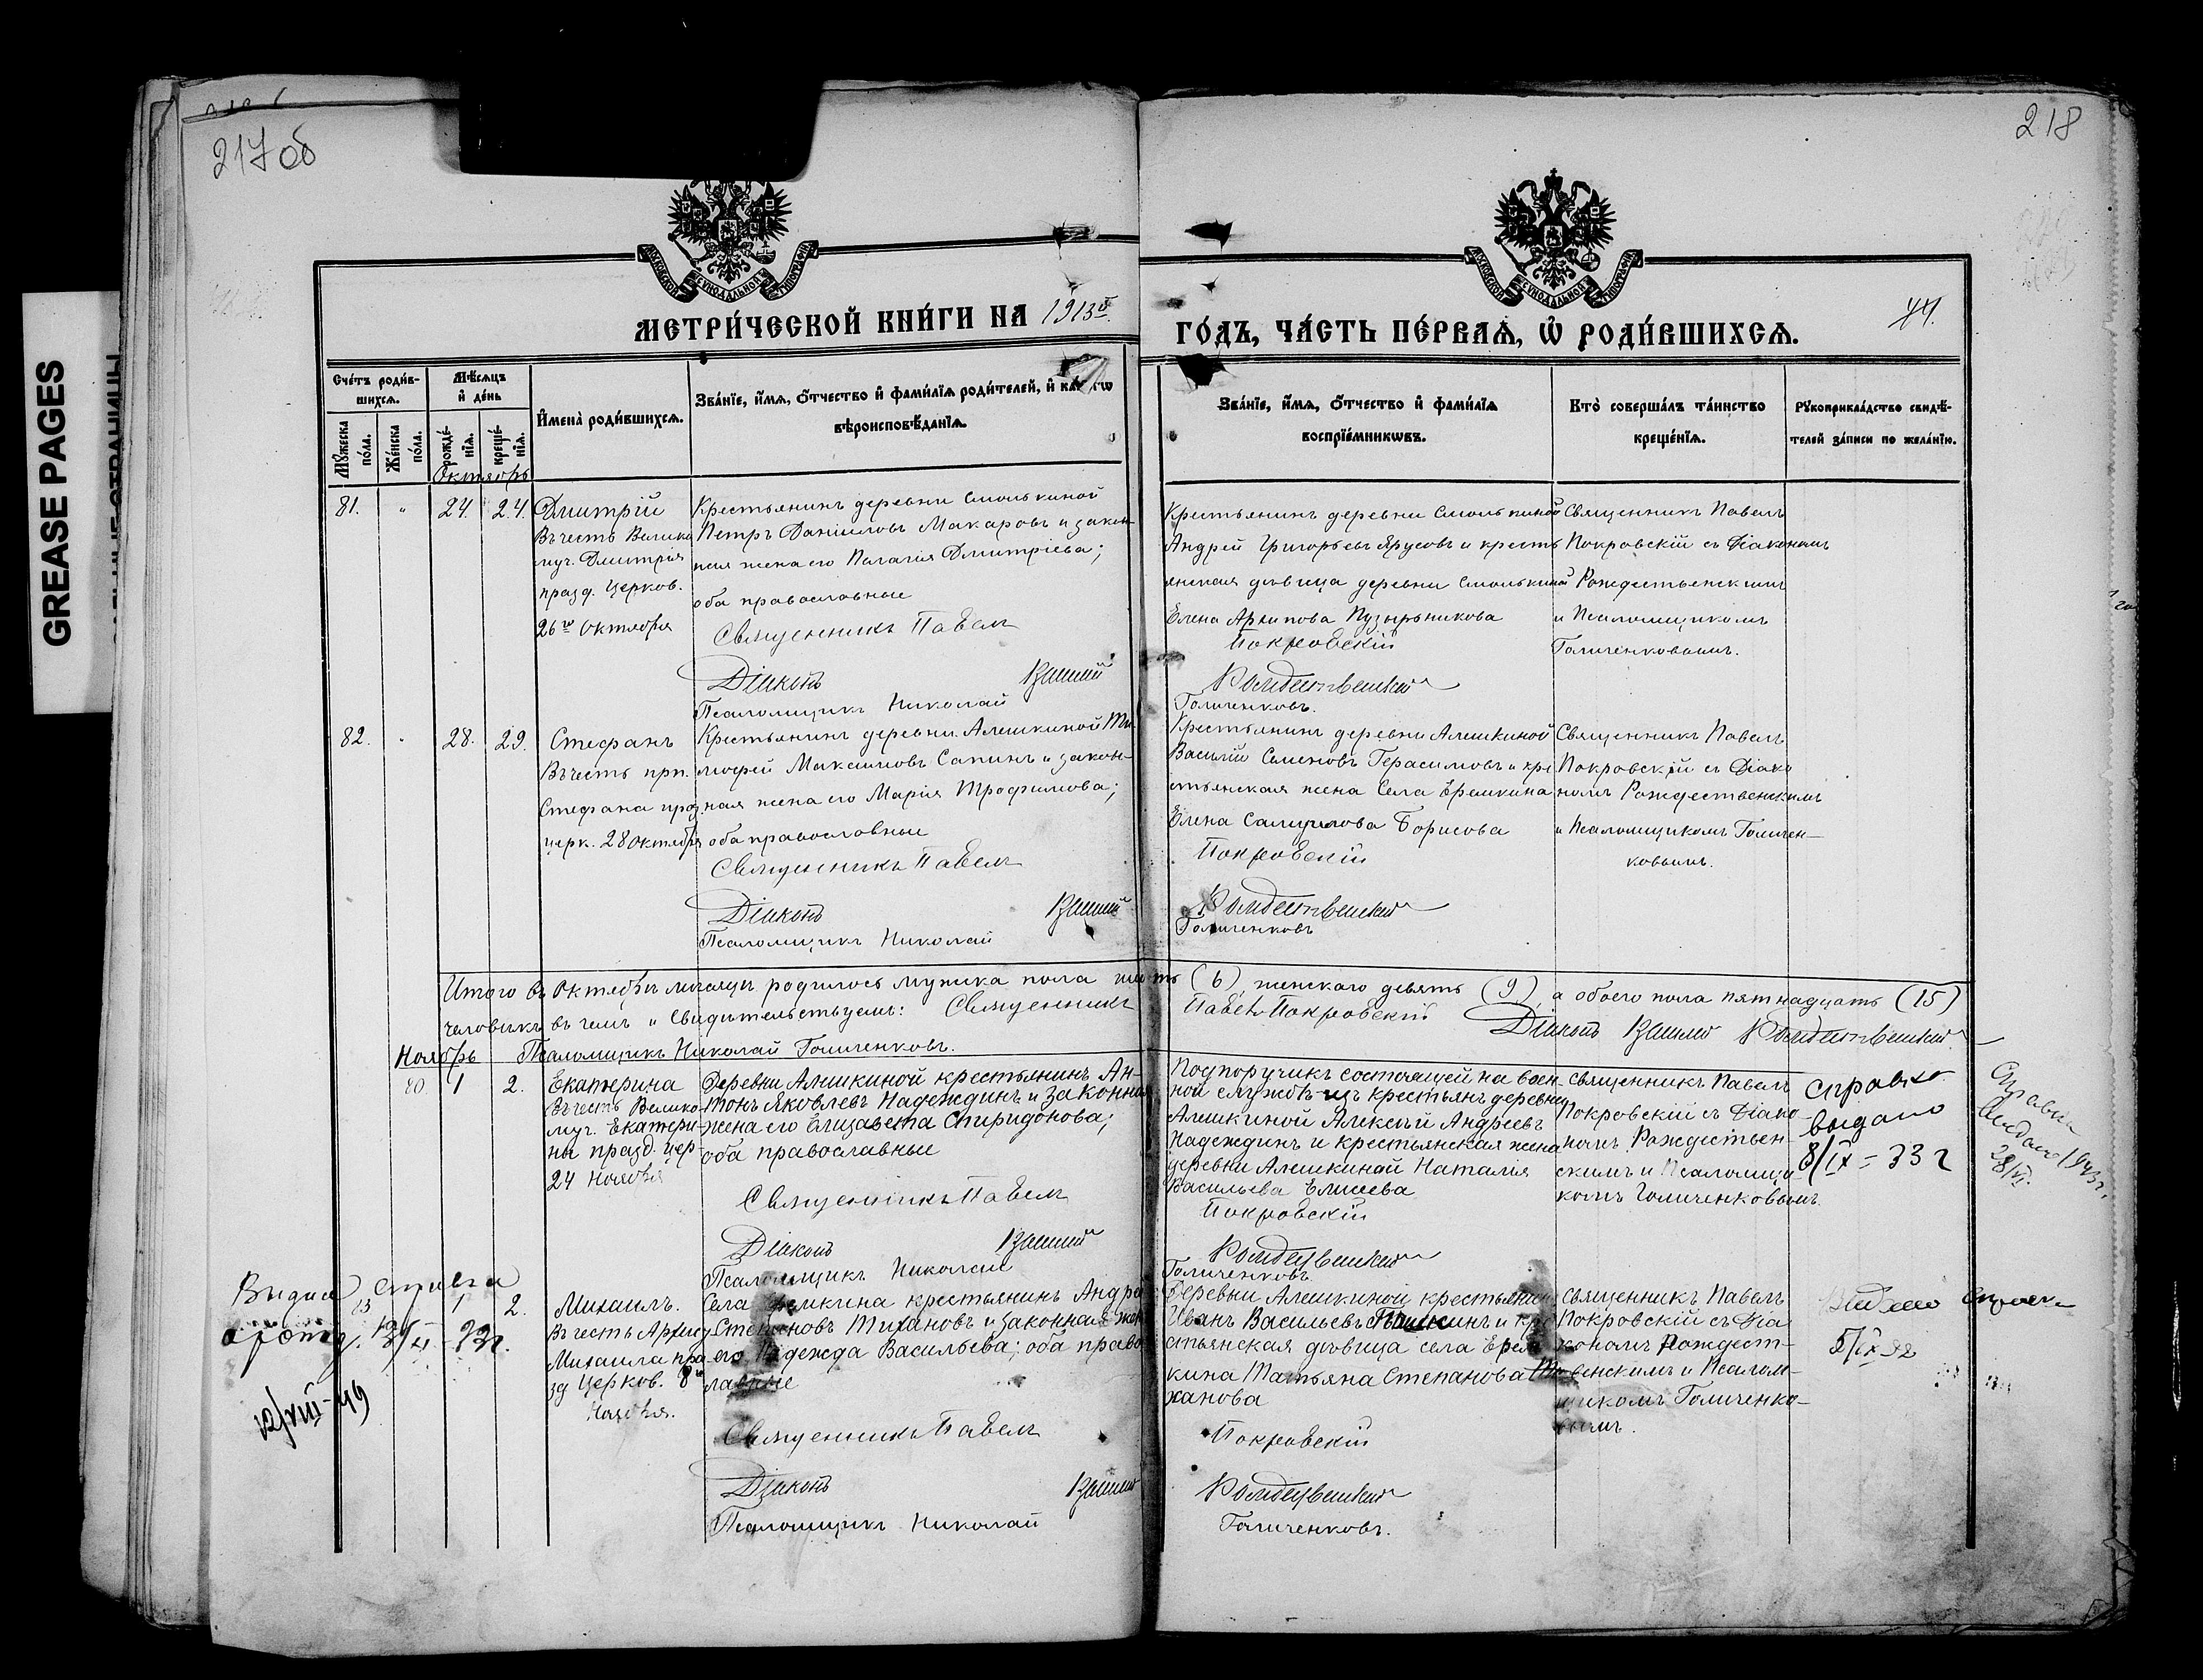 GREASE PAGES
217 об
218
МОСКОВСКОЙ СѴНОДАЛЬНОЙ ТИПОГРАФІИ
МОСКОВСКОЙ СѴНОДАЛЬНОЙ ТИПОГРАФІИ
МЕТРИ́ЧЕСКОЙ КНИ́ГИ НА 1913й
ГО́ДЪ, ЧА́СТЬ ПЕ́РВАѦ, Ѡ РОДИ́ВШИХСѦ.
Сче́тъ роди́в-
шихсѧ.
Мꙋ́жеска по́ла.
Же́нска по́ла.
Мѣ́сѧцъ
и де́нь
рожде́-
нїѧ.
креще́-
нїѧ.
И҆мена̀ роди́вшихсѧ.
Зва́нїе, и҆́мѧ, ѻ҆́тчество и҆ фами́лїѧ роди́телей, и҆
вѣроисповѣ́данїѧ.
Зва́нїе, и҆́мѧ, ѻ҆́тчество и҆ фами́лїѧ
воспрїе́мникѡвъ.
Кто̀ соверша́лъ та́инство
креще́нїѧ.
Рꙋкоприкла́дство свидѣ́-
телей за́писи по жела́нїю.
Октябрь
81. " 24. 24. Дмитрій
Въ честь Велико
муч. Дмитрія
празд. Церков.
26го Октября
Крестьянинъ деревни Смолькиной
Петръ Данииловъ Макаровъ и закон-
ная жена его Пелагія Дмитріева;
оба православные
Священникъ Павелъ
Діаконъ
Псаломщикъ Николай
Крестьянинъ деревни Смолькиной
Андрей Григорьевъ Ярусовъ и кресть
янская дѣвица деревни Смолькиной
Елена Архипова Пузырьникова
Покровскій
Рождественскій
Голиченковъ.
Священникъ Павелъ
Покровскій съ Діакономъ
Рождественскимъ
и Псаломщикомъ
Голиченковымъ.
82. " 28. 29. Стефанъ
Въ честь прп.
Стефана празд.
церк. 28 октября
Крестьянинъ деревни Алешкиной Ти-
мофей Максимовъ Сапинъ и закон-
ная жена его Марія Трофимова;
оба православные
Священникъ Павелъ
Діаконъ
Псаломщикъ Николай
Крестьянинъ деревни Алешкиной
Василій Семеновъ Герасимовъ и кре
стьянская жена Села Еремкина
Елена Самуилова Борисова
Покровскій
Рождественскій
Голиченковъ
Священникъ Павелъ
Покровскій съ Діако
номъ Рождественскимъ
и Псаломщикомъ Голичен-
ковымъ.
Итого въ Октябрѣ мѣсяцѣ родилось мужска пола шесть (6), женскаго девять (9), а обоего пола пятнадцать (15)
человѣкъ въ чемъ и Свидѣтельствуемъ: Священникъ Павелъ Покровскій Діаконъ Рождественскій
Ноябрь Псаломщикъ Николай Голиченковъ.
80 1 2. Екатерина
Въ честь Велико
муч. Екатери-
ны празд. цер
24 Ноября
Деревни Алешкиной крестьянинъ Ан-
тонъ Яковлевъ Надеждинъ и законная
жена его Елизавета Спиридонова;
оба православные
Священникъ Павелъ
Діаконъ
Псаломщикъ Николай
Подпоручикъ состоящей на воен-
ной службѣ изъ крестьянъ деревни
Алешкиной Алексій Андреевъ
Надеждинъ и крестьянская жена
деревни Алешкиной Наталія
Васильева Елисеева
Покровскій
Рождественскій
Голиченковъ.
Священникъ Павелъ
Покровскій съ Діако-
номъ Рождествен-
скимъ и Псаломщи
комъ Голиченковымъ.
справка
выдано
8/IX - 33 г
Справка
Выдано 1943г.
28/VI.
Выдана справка
83 1 2. Михаилъ.
Въ честь Архист
Михаила пра
зд Церков. 8го
Ноября.
12/VIII-49
Села Еремкина крестьянинъ Андрей
Степановъ Тихановъ и законная жена
его Надежда Васильева; оба право
славные
Священникъ Павелъ
Діаконъ
Псаломщикъ Николай
Деревни Алешкиной крестьянинъ
Иванъ Васильевъ и кре
стьянская дѣвица села Ерем
кина Татьяна Степанова Ти
ханова
Покровскій
Рождественскій
Голиченковъ.
Священникъ Павелъ
Покровскій съ Діа
кономъ Рождест-
венскимъ и Псалом-
щикомъ Голиченко-
вымъ.
Выдано справка
5/IX 32